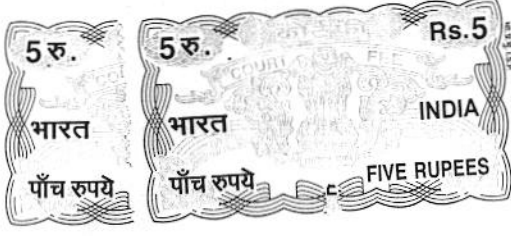 5 रु.
भारत
पाँच रुपये
5 रु. Rs.5
COURT FEE
भारत INDIA
पाँच रुपये FIVE RUPEES